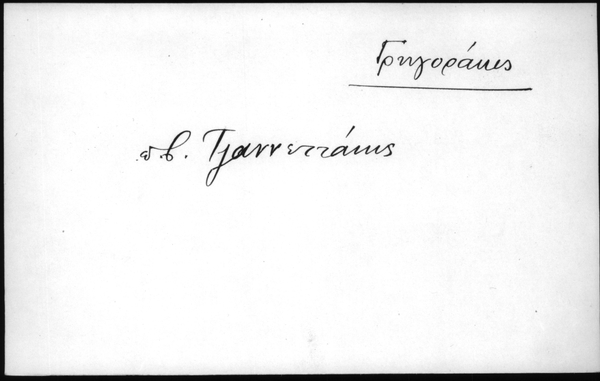 Γρηγοράκης
π.β. Τζαννεττάκης